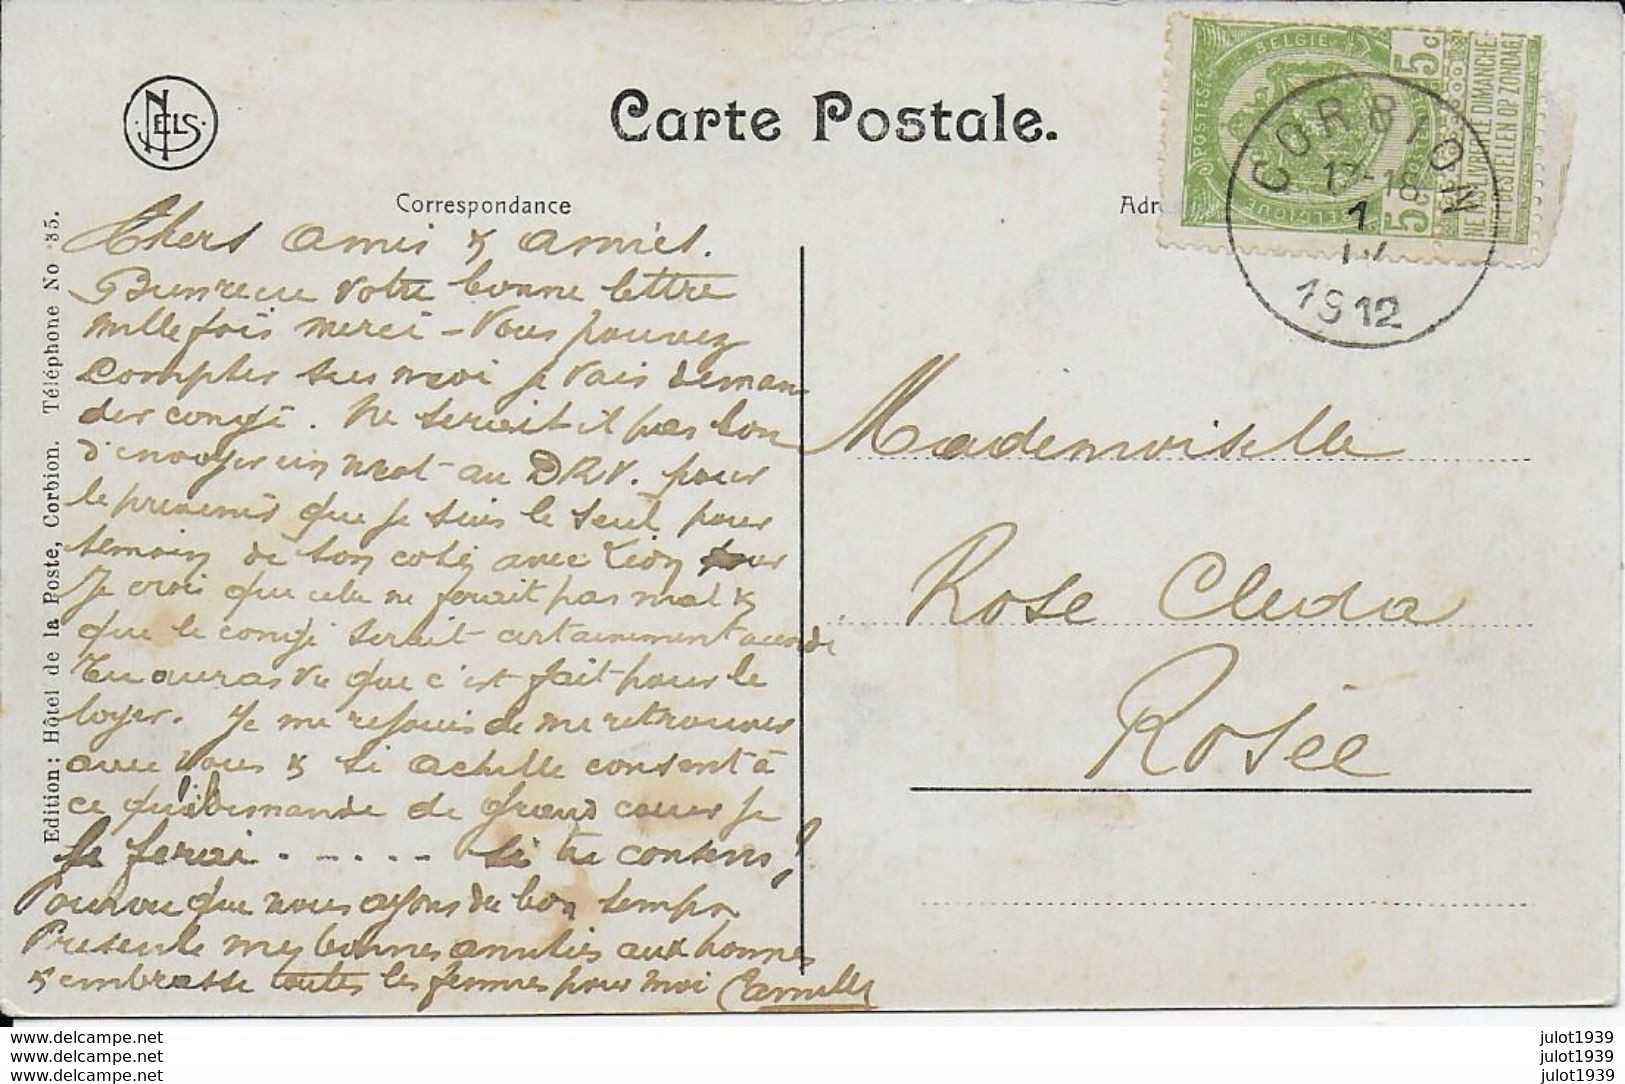 NELS
Carte Postale.
Correspondance
Adr
BELGIE
POSTES
BELGIQUE
5c
5
NE PAS LIVRER LE DIMANCHE
NIET BESTELLEN OP ZONDAG
CORBION
17-18
1
IV
1912
Edition: Hôtel de la Poste, Corbion. Téléphone No 35.
Chers amis & amies.
Bien recu votre bonne lettre
mille fois merci - Vous pouvez
compter sur moi je vais deman
der congé. Ne serait il pas bon
d'envoyer un mot au DRV. pour
le prevenir que je suis le seul pour
temoin de son coté avec Léon
Je crois que cela ne ferait pas mal &
que le congé serait certainement accordé
Tu auras vu que c'est fait pour le
loyer. Je me rejouis de me retrouver
avec vous & si achille consent à
ce qu'il demande de grand cœur je
le ferai ..... si tu consens!
Pourvu que nous ayons du bon temps
Presente mes bonnes amitiés aux hommes
& embrasse toutes les femmes pour moi Camille
Mademoiselle
Rose Cleda
Rosée
www.delcampe.net
www.delcampe.net
www.delcampe.net
julot1939
julot1939
julot1939